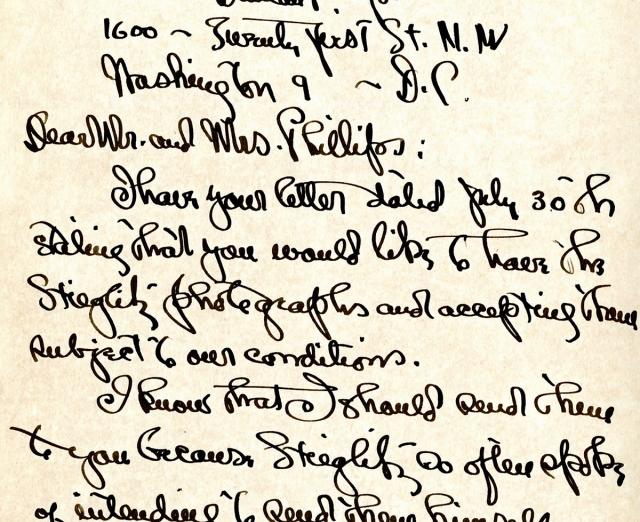 1600 ~ Twenty first St. N. W
Washington 9 ~ D.C.
Dear Mr. and Mrs. Phillips:
I have your letter dated July 30th
stating that you would like to have the
Stieglitz photographs and accepting them
subject to our conditions.
I know that I should send them
to you because Stieglitz so often spoke
of intending to send them himself